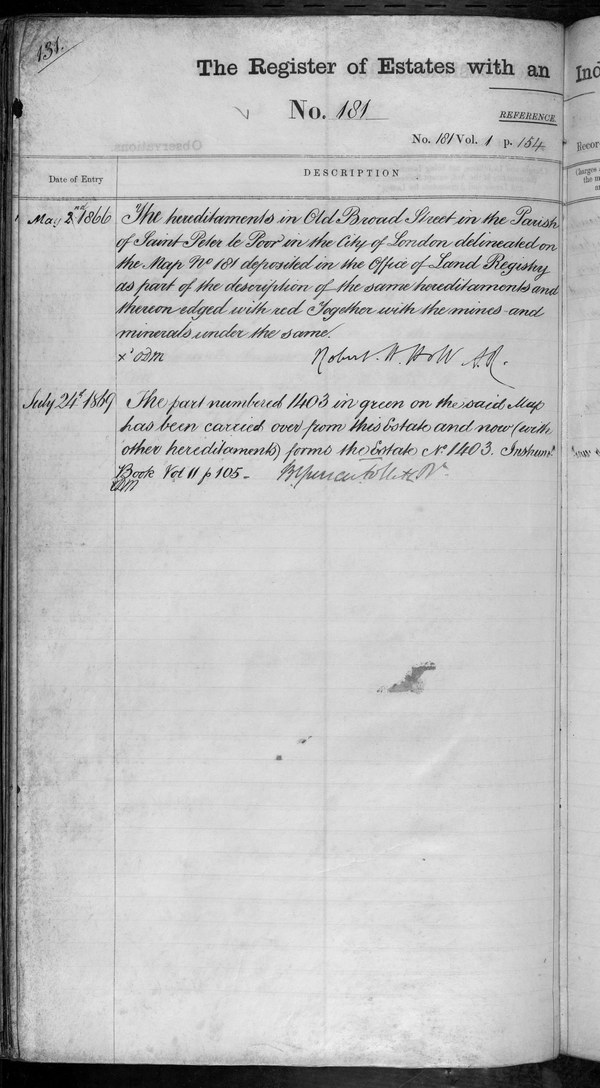 131.
The Register of Estates with an
No. 181
REFERENCE.
No. 181 Vol. 1 p. 154
Date of Entry
DESCRIPTION
May 2nd 1866
The hereditaments in Old Broad Street in the Parish
of Saint Peter le Poor in the City of London delineated on
the Map No 181 deposited in the Office of Land Registry
as part of the description of the same hereditaments and
thereon edged with red Together with the mines and
minerals under the same.
Robert H. Holt A.R.
July 24th 1869
The part numbered 1403 in green on the said Map
has been carried over from this Estate and now (with
other hereditaments) forms the Estate No. 1403. Instrumt
Book Vol 11 p 105 -
Ind
Recor
Charges
the